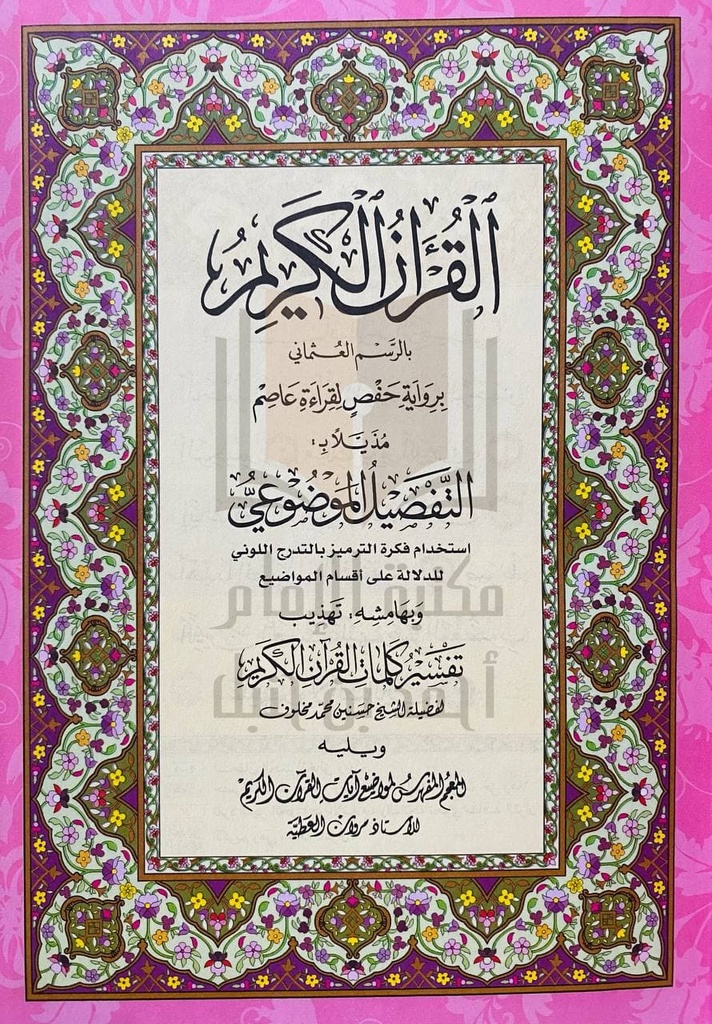 ٱلْقُرْءَانُ ٱلْكَرِيمُ
بالرَّسم العُثماني
بِرِوَايَةِ حَفْصٍ لِقِرَاءَةِ عَاصِمْ
مُذَيَّلاً بِ:
التَّفْصِيلُ المَوْضُوعِيُّ
استخدام فكرة الترميز بالتدرج اللوني
للدلالة على أقسام المواضيع
وَبِهَامِشِهِ: تَهْذِيب
تَفْسِيْر كَلِمَاتِ القُرْآنِ الكَرِيمِ
لفضيلة الشيخ حسنين محمد مخلوف
ويليه
المعجم المفهرس لمواضيع آيات القرآن الكريم
للأستاذ مروان العطيّة
مكتبة الإمام
أحمد بن حنبل